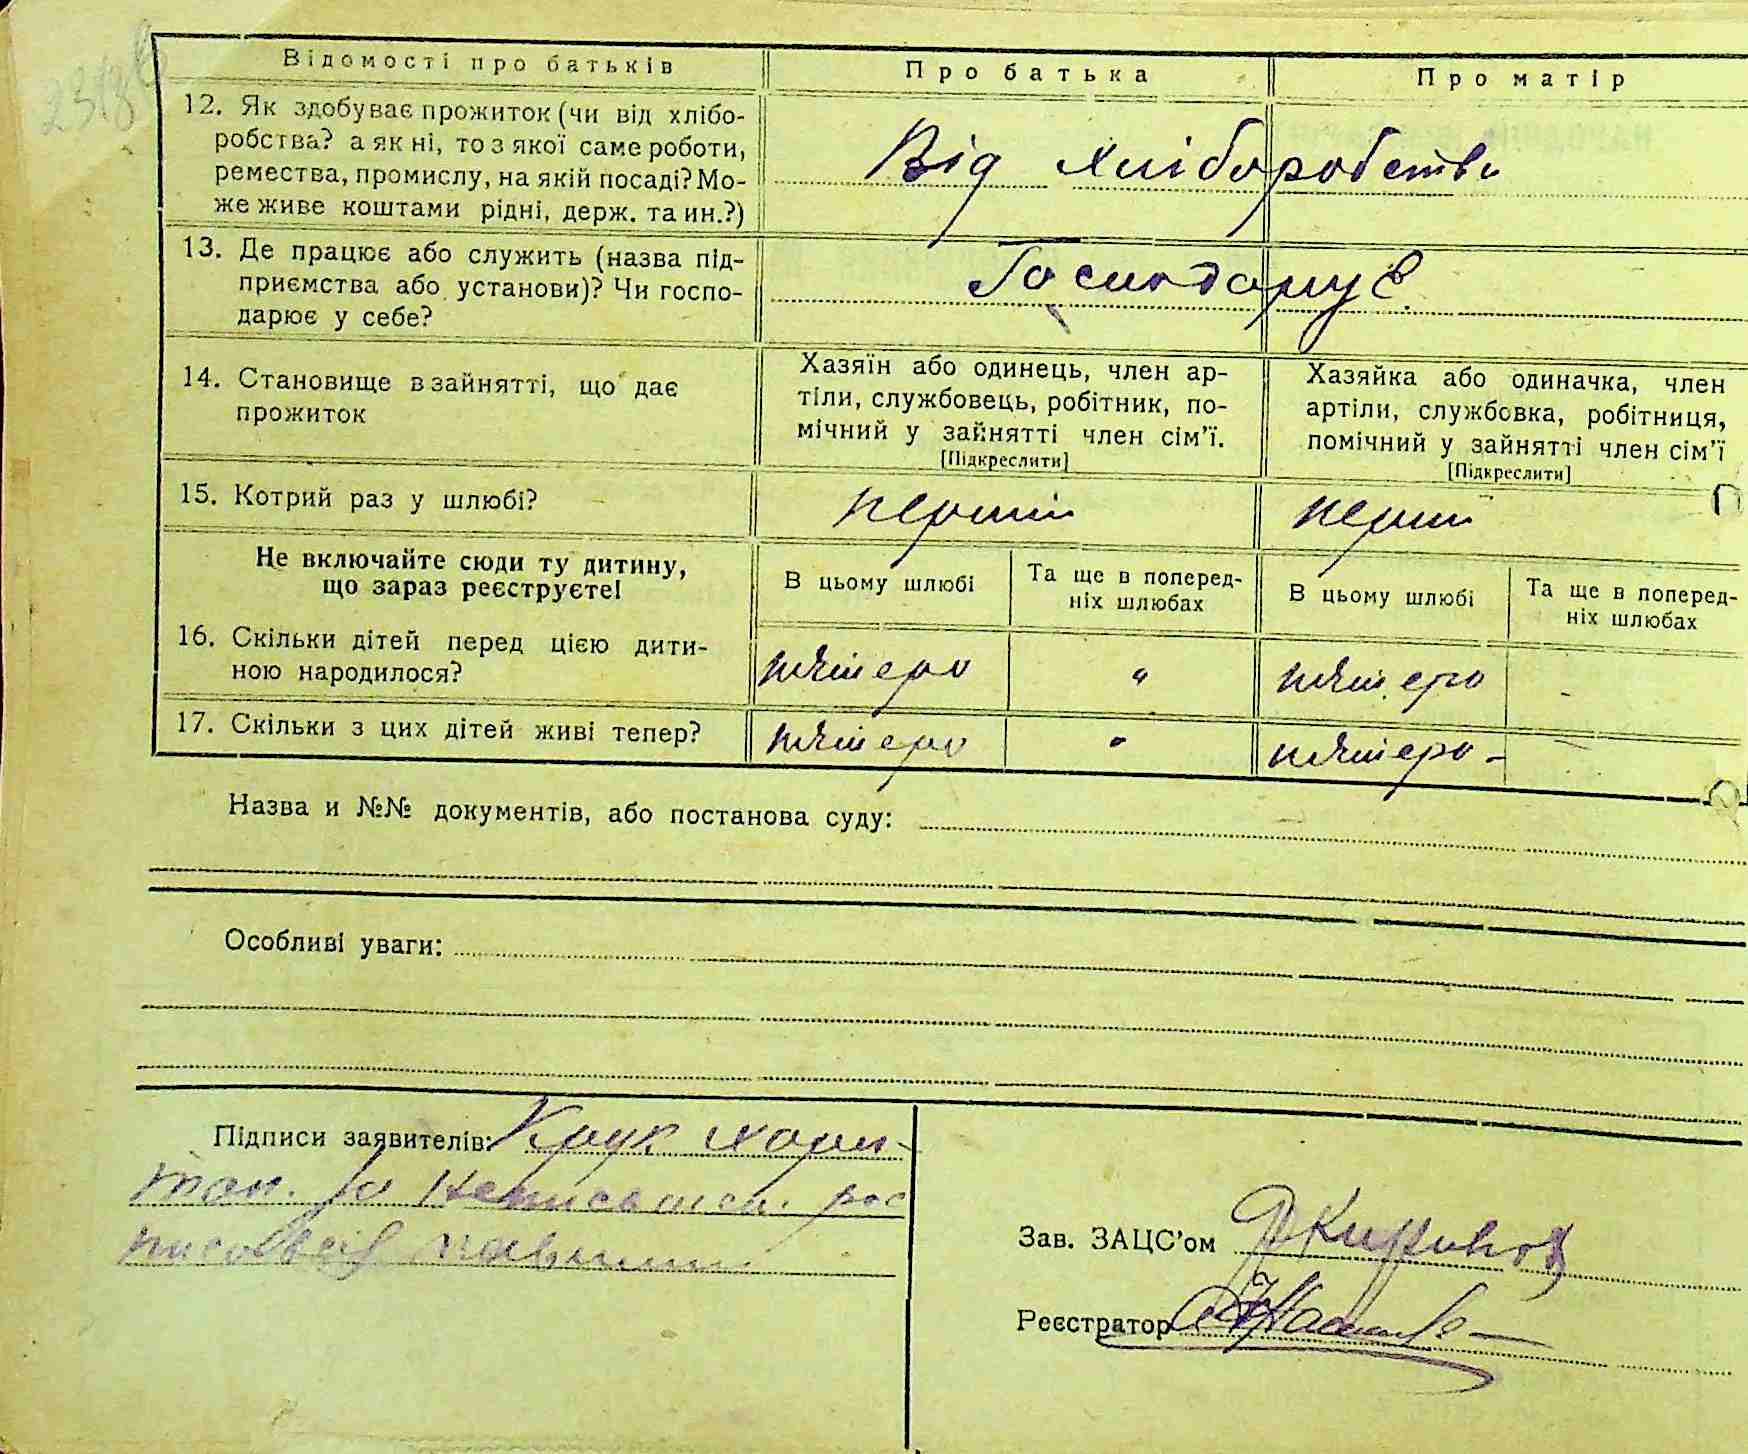 Відомості про батьків
Про батька
Про матір
12. Як здобуває прожиток (чи від хлібо-
робства? а як ні, то з якої саме роботи,
ремества, промислу, на якій посаді? Мо-
же живе коштами рідні, держ. та ин.?)
Від хліборобства
13. Де працює або служить (назва під-
приємства або установи)? Чи госпо-
дарює у себе?
Господарує.
14. Становище в зайнятті, що дає
прожиток
Хазяїн або одинець, член ар-
тіли, службовець, робітник, по-
мічний у зайнятті член сім'ї.
[Підкреслити]
Хазяйка або одиначка, член
артіли, службовка, робітниця,
помічний у зайнятті член сім'ї
[Підкреслити]
15. Котрий раз у шлюбі?
перший
перший
Не включайте сюди ту дитину,
що зараз реєструєте!
В цьому шлюбі
Та ще в поперед-
ніх шлюбах
В цьому шлюбі
Та ще в поперед-
ніх шлюбах
16. Скільки дітей перед цією дити-
ною народилося?
пятеро
"
пятеро
-
17. Скільки з цих дітей живі тепер?
пятеро
"
пятеро -
Назва и №№ документів, або постанова суду:
Особливі уваги:
Підписи заявителів: Крук Хари-
тон. за
Зав. ЗАЦС'ом
Реєстратор